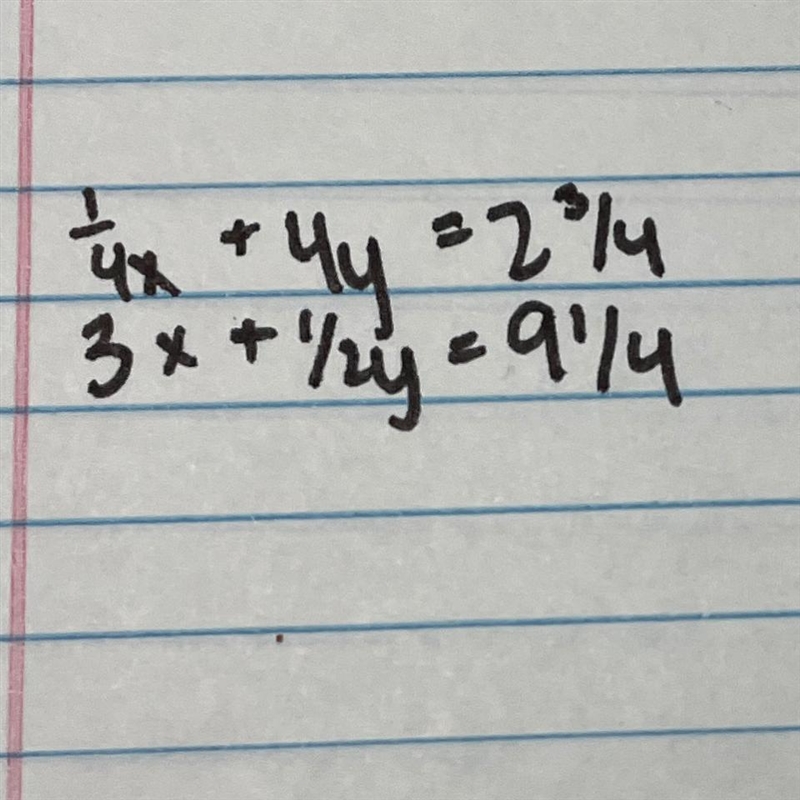 1/4x + 4y = 2 3/4
3x + 1/2y = 9 1/4